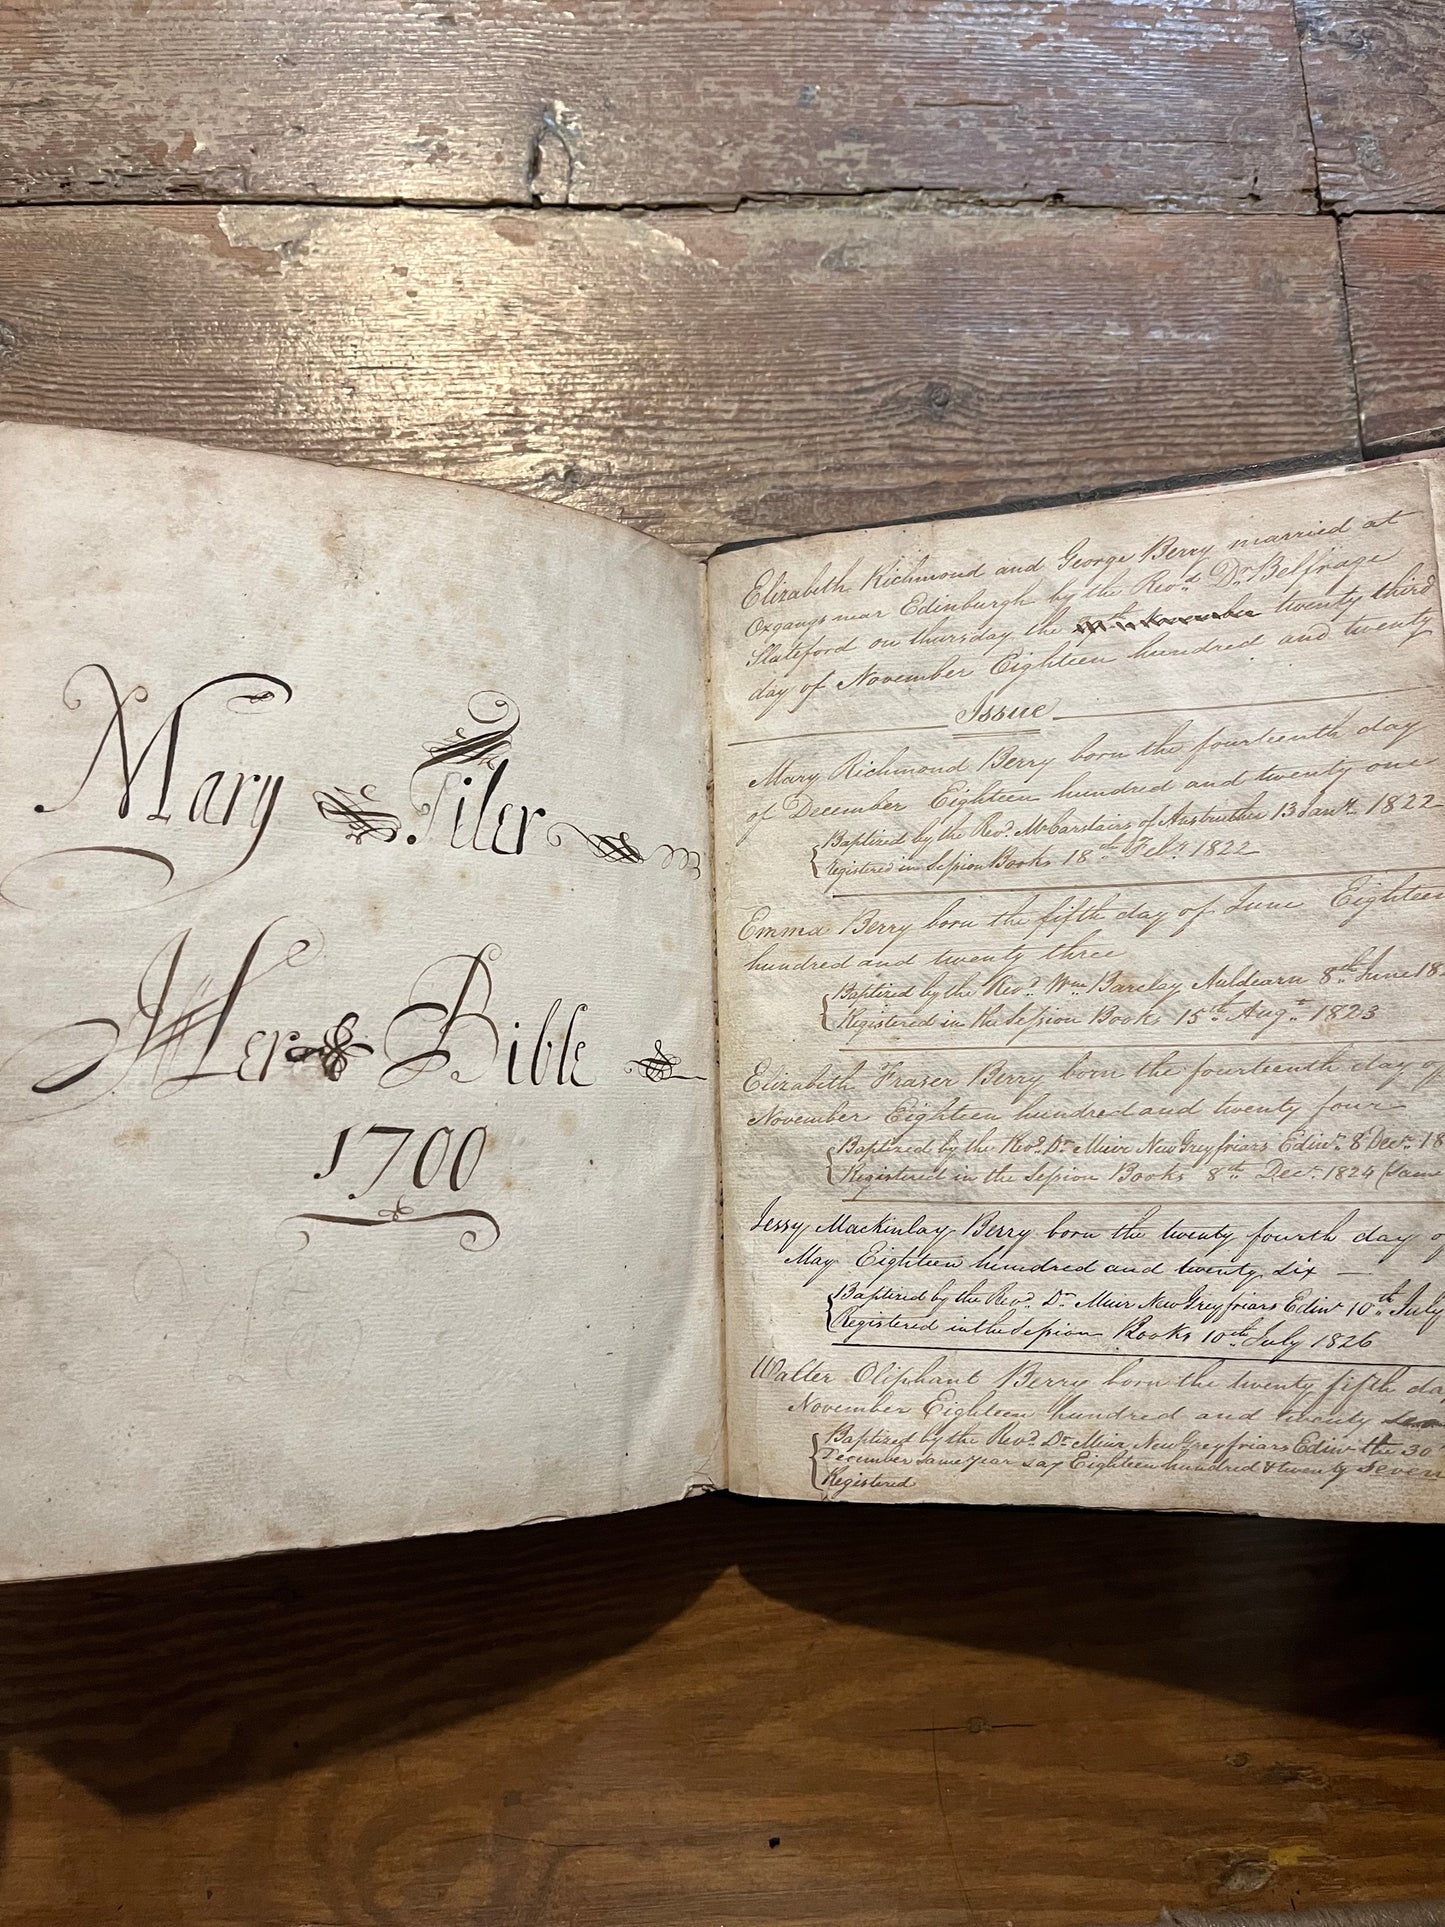 Mary Tiler
Her Bible
1700
Elizabeth Richmond and George Berry married at
Oxgangs near Edinburgh by the Revd. Dr Belfrage
Slateford on thursday the twenty third
day of November Eighteen hundred and twenty
Issue
Mary Richmond Berry born the fourteenth day
of December Eighteen hundred and twenty one
Baptized by the Revd. of Anstruther 13 Jany. 1822
Registered in Session Books 18th Feby. 1822
Emma Berry born the fifth day of June Eighteen
hundred and twenty three
Baptized by the Revd. Wm. Barclay Auldearn 8th June 18
Registered in the Session Books 15th Augt. 1823
Elizabeth Fraser Berry born the fourteenth day of
November Eighteen hundred and twenty four
Baptized by the Revd. Dr. Muir New Greyfriars Edinr. 8 Decr. 18
Registered in the Session Books 8th Decr. 1824 (Same
Jessy Mackinlay Berry born the twenty fourth day of
May Eighteen hundred and twenty six —
Baptized by the Revd. Dr. Muir New Greyfriars Edinr 10th July
Registered in the Session Books 10th July 1826
Walter Oliphant Berry born the twenty fifth da
November Eighteen hundred and twenty
Baptized by the Revd. Dr. Muir New Greyfriars Edinr the 30
December same year say Eighteen hundred & twenty seven
Registered